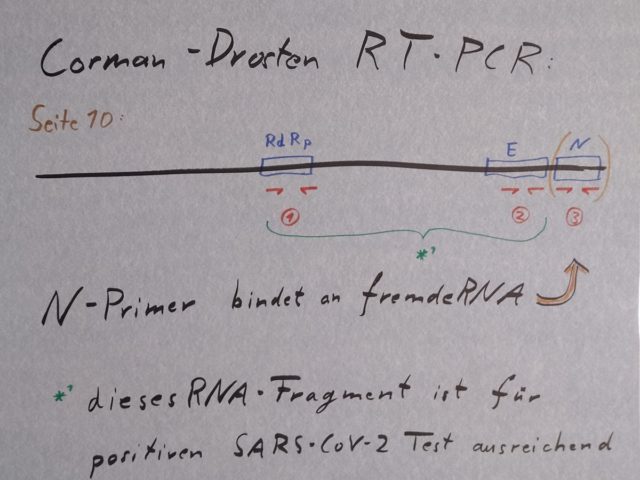 Corman-Drosten RT-PCR:
Seite 10:
RdRp E N
1 2 3
*¹
N-Primer bindet an fremde RNA
*¹ dieses RNA-Fragment ist für
positiven SARS-CoV-2 Test ausreichend